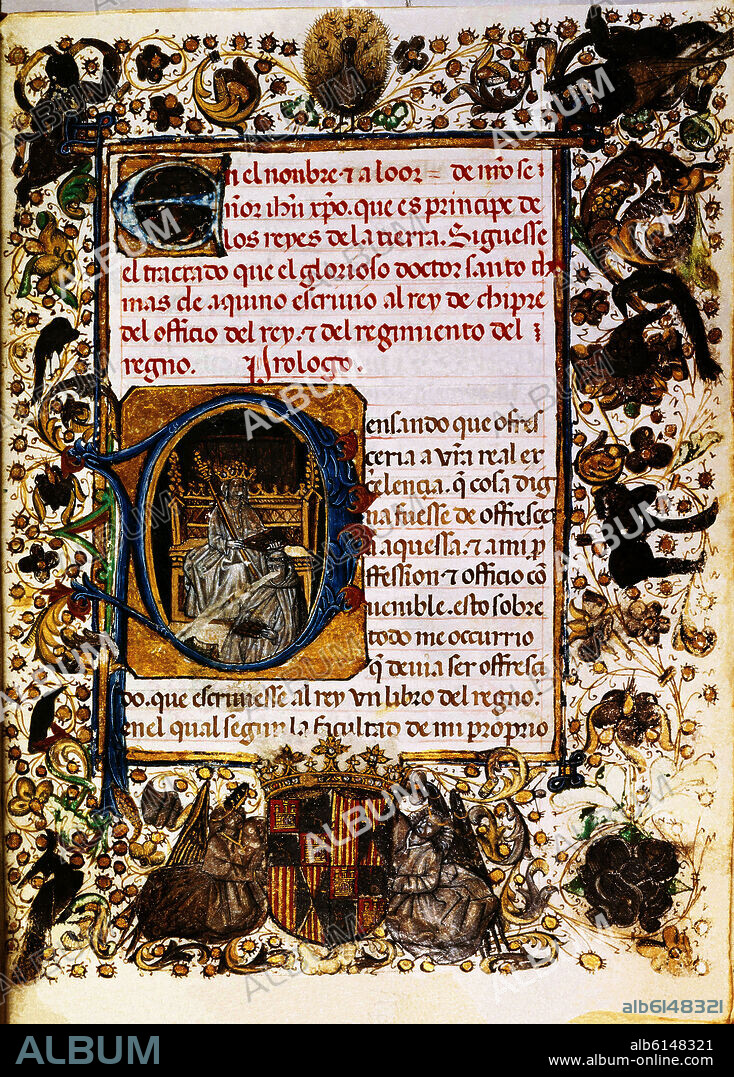 En el nonbre ⁊ a loor = de nr̃o se
ñor ihũ xp̃o. que es principe de
los reyes dela tierra. Siguesse
el tractado que el glorioso doctor santo tho
mas de aquino escriuio al rey de chipre
del officio del rey. ⁊ del regimiento del
regno. Prologo.
Pensando que ofres
ceria a vr̃a real ex
celencia. q̃ cosa dig
na fuesse de offresce
a aquessa. ⁊ a mi p
ffession ⁊ officio cõ
uenible. esto sobre
todo me occurrio
q̃ deuia ser offresci
do. que escriuiesse al rey vn libro del regno.
enel qual segun la facultad de mi proprio
alb6148321
ALBUM
alb6148321
www.album-online.com